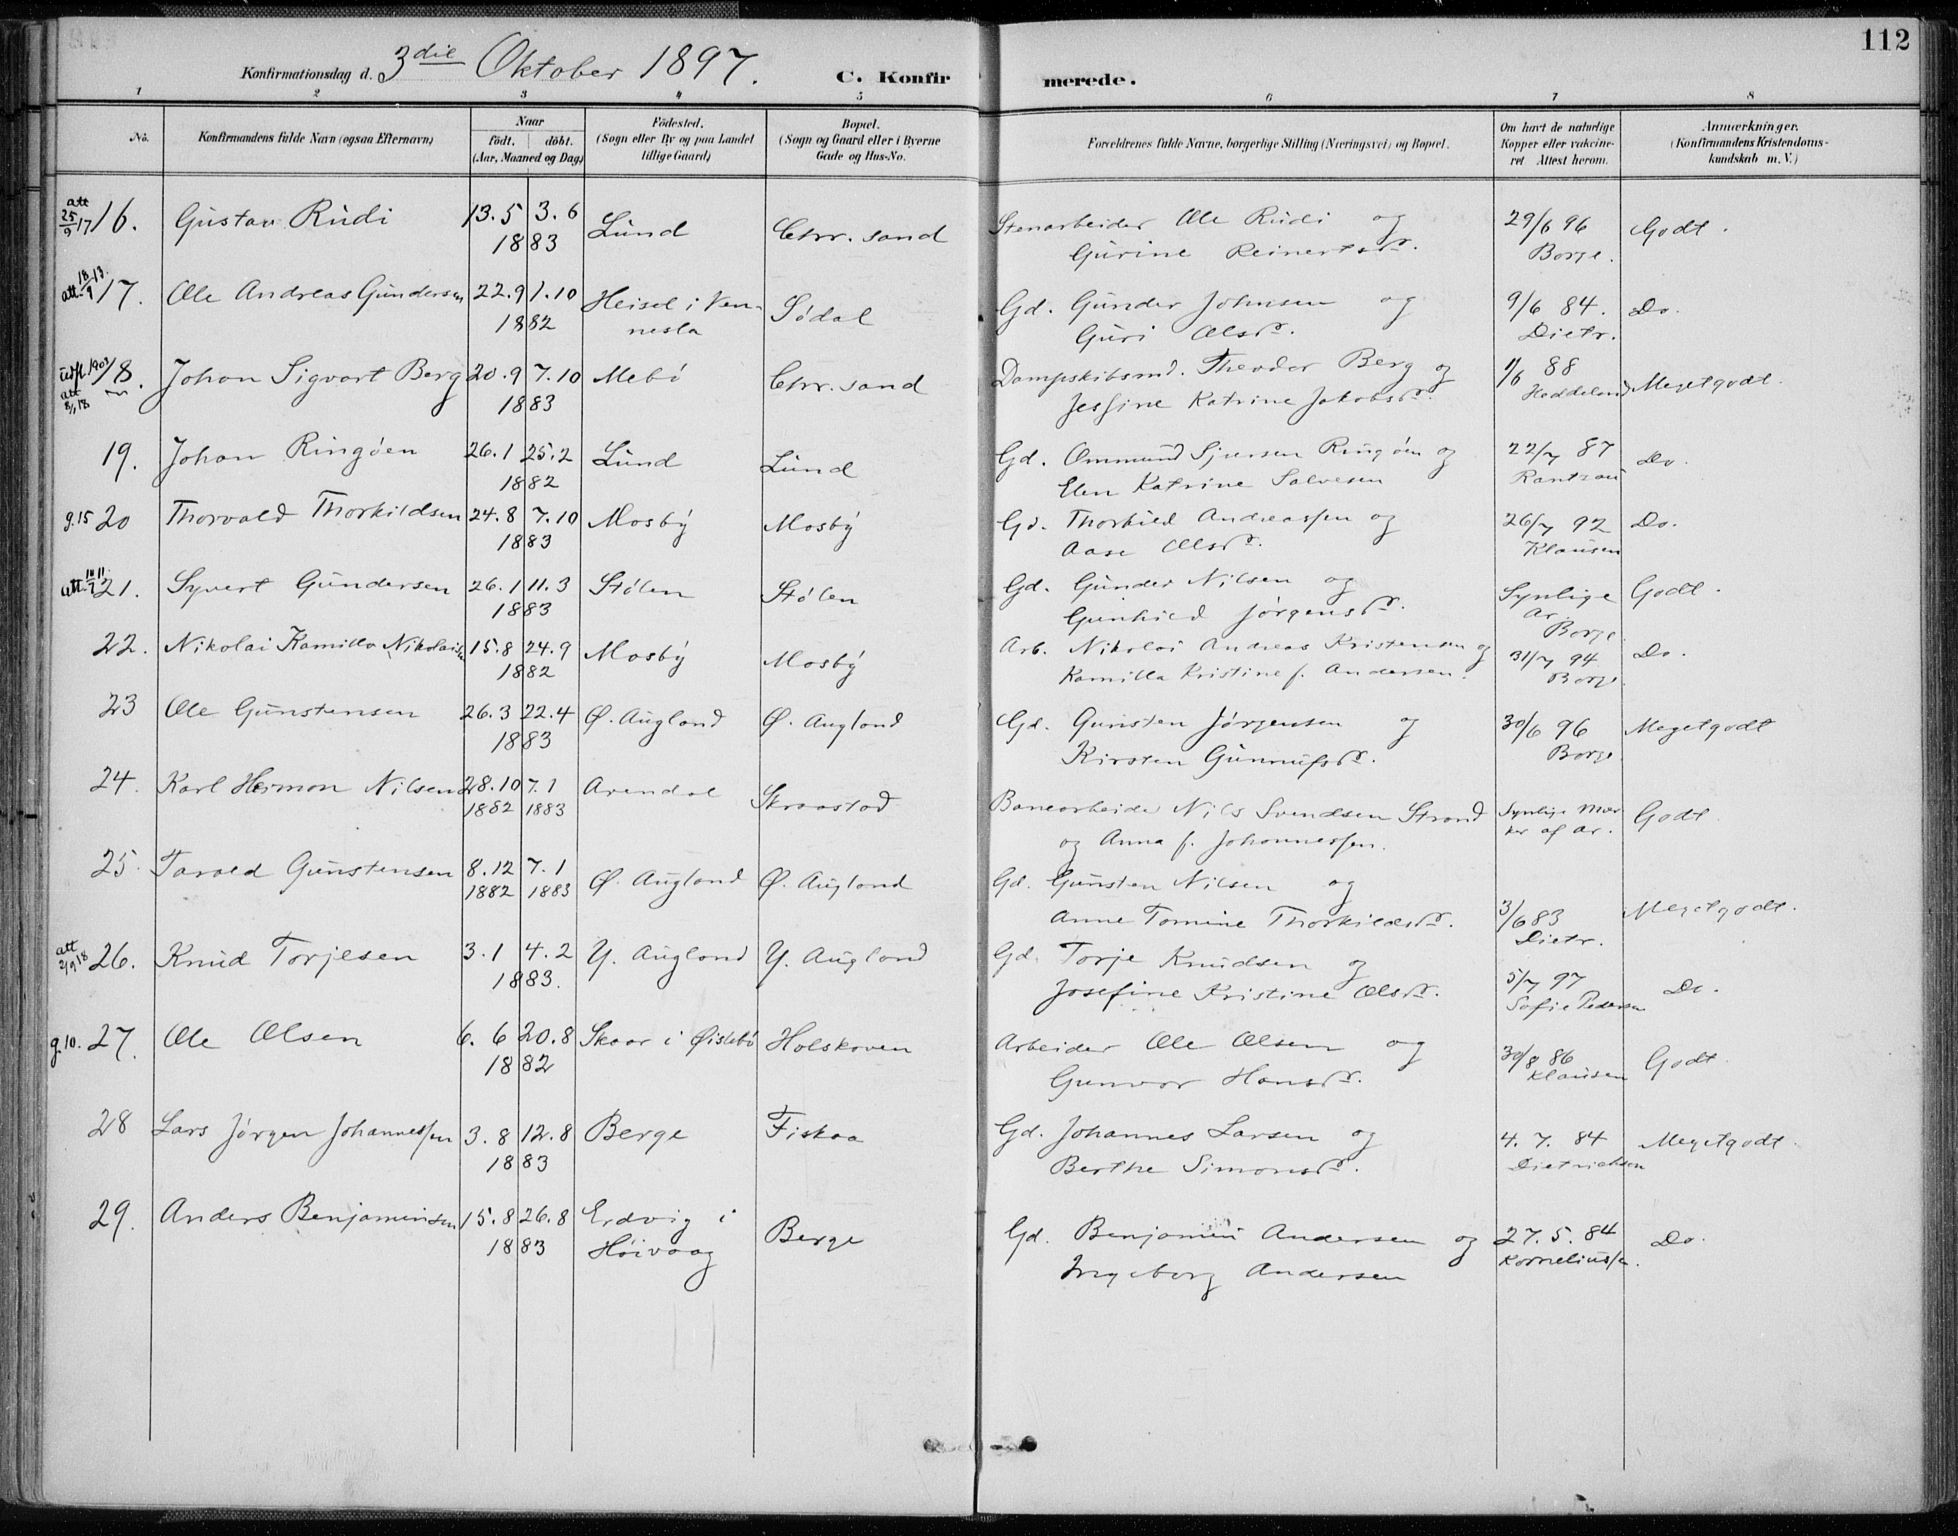 112
Konfirmationsdag d. 3die Oktober 1897. C. Konfirmerede.
1 2 3 4 5 6 7 8
No. Konfirmandens fulde Navn (ogsaa Efternavn) Naar födt. döbt. (Aar, Maaned og Dag) Födested. (Sogn eller By og paa Landet tillige Gaard) Bopæl. (Sogn og Gaard eller i Byerne Gade og Hus-No. Forældrenes fulde Navne, borgerlige Stilling (Næringsvei) og Bopæl. Om havt de naturlige Kopper eller vakcineret Attest herom. Anmærkninger. (Konfirmandens Kristendomskundskab m. V.)
att 25/9 17 16. Gustav Rudi 13.5 3.6 Lund Chr. sand Stenarbeider Ole Rudi og 29/6 96 Godt.
1883 Gurine Reinertsdr. Borge.
att. 18/9 13. 17. Ole Andreas Gundersen 22.9 1.10 Heisel i Ven- Södal Gd. Gunder Johnsen og 9/6 84. Do.
1882 nesla Guri Olsdr. Dietr.
udfl. 1903 18. Johan Sigvart Berg 20.9 7.10 Mebö Chr. sand Dampskibsmd. Theodor Berg og 1/6 88 Megetgodt.
att 8/1 18 1883 Jesfine Katrine Jakobsdr. Heddeland
19. Johan Ringöen 26.1 25.2 Lund Lund Gd. Ommund Sjursen Ringöen og 22/7 87 Do.
1882 Elen Katrine Salvesen Rantzau
g.15 20 Thorvald Thorkildsen 24.8 7.10 Mosby Mosby Gd. Thorkild Andreassen og 26/7 92 Do.
1883 Aase Olsdr. Klausen
att. 21. Syvert Gundersen 26.1 11.3 Stølen Stølen Gd. Gunder Nilsen og Synlige Godt.
1883 Gunhild Jørgensdr. Ar. Borge
22. Nikolai Kamillo Nikolaisen 15.8 24.9 Mosby Mosby Arb. Nikolai Andreas Kristensen og 31/7 94 Do.
1882 Kamilla Kristine f. Andersen. Borge
23 Ole Gunstensen 26.3 22.4 Ø. Augland Ø. Augland Gd. Gunsten Jørgensen og 30/6 96 Megetgodt
1883 Kirsten Gunnufsdr. Borge
24. Karl Herman Nilsen 28.10 7.1 Arendal Skraastad Banearbeider Nils Svendsen Strand Synlige Mær- Godt
1882 1883 og Anna f. Johannessen. ker af Ar.
25. Tarald Gunstensen 8.12 7.1 Ø. Augland Ø. Augland Gd. Gunsten Nilsen og 3/6 83 Megetgodt.
1882 1883 Anne Tomine Thorkildsdr. Dietr.
att 2/9 18 26. Knud Torjesen 3.1 4.2 Y. Augland Y. Augland Gd. Torje Knudsen og 5/7 97 Do.
1883. Josefine Kristine Olsdr. Sofie Pedersen
g.10. 27. Ole Olsen 6.6 20.8 Skaar i Øislebö Holskoven Arbeider Ole Olsen og 30/8 86 Godt
1882 Gunvor Hansdr. Klausen
28 Lars Jørgen Johannessen 3.8 12.8 Berge Fiskaa Gd. Johannes Larsen og 4. 7. 84 Megetgodt.
1883 Berthe Simonsdr. Dietrichsen
29. Anders Benjaminsen 15.8 26.8 Erdvig i Berge Gd. Benjamin Andersen og 27. 5. 84 Do.
1883 Höivaag Ingeborg Andersen Korneliussen.